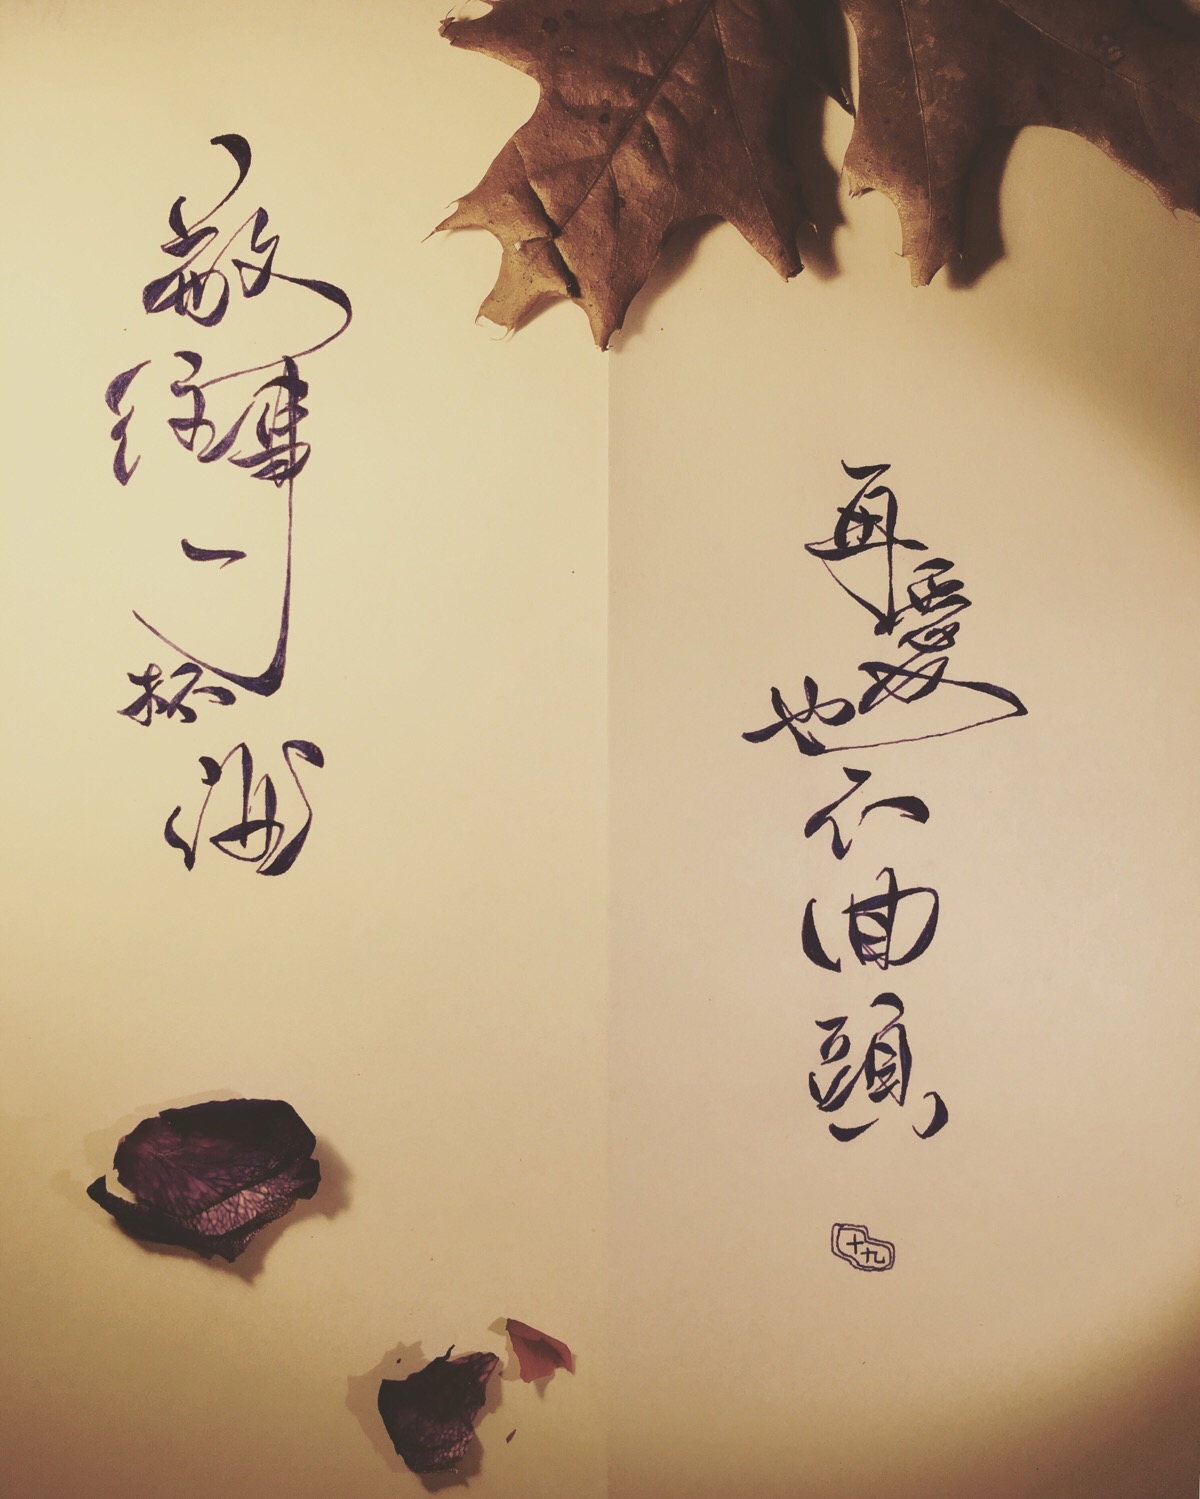 敬往事一杯酒
再愛也不回頭
十九